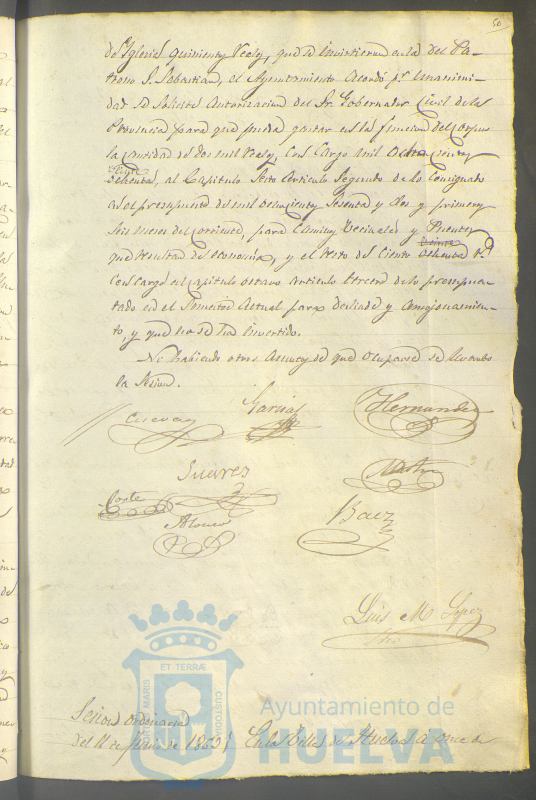 50
de Iglesias quinientos reales, que se invirtieron en la del Pa-
trono S. Sebastian, el Ayuntamiento acordó pr. unanimi-
dad se solicite autorizacion del Sr. Gobernador Civil de la
Provincia para que pueda gastar en la funcion del Corpus
la cantidad de dos mil reales, con cargo mil ochocientos
ochenta, al Capitulo Sesto Articulo Segundo de lo consignado
en el presupuesto de mil ochocientos sesenta y dos y primeros
seis meses del corriente, para Caminos vecinales y Puentes
que resultan de economia, y el resto de ciento veinte rs.
con cargo al capitulo octavo articulo tercero de lo presupues-
tado en el semestre actual para deslinde y amojonamien-
to, y que no se ha invertido.
No habiendo otros asuntos de que ocuparse se levantó
la sesion.
Cuevas Garcia Hernandez
Suares Castro
Corte
Alonso Baez
Luis M. Lopez
Srio
ET TERRÆ
MARIS
CUSTODIA
Ayuntamiento de
HUELVA
Sesion ordinaria
del 11 de Junio de 1863 En la Villa de Huelva á once de